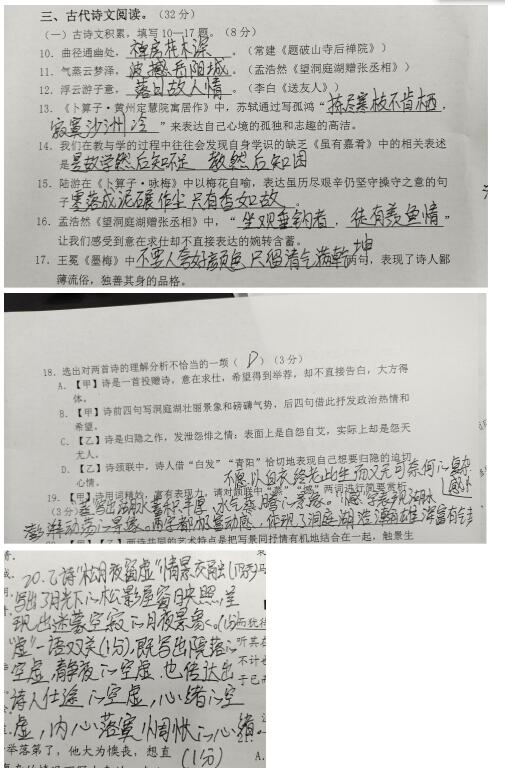 三、古代诗文阅读。(32分)
(一)古诗文积累，填写10—17题。(8分)
10. 曲径通幽处，禅房花木深。(常建《题破山寺后禅院》)
11. 气蒸云梦泽，波撼岳阳城。(孟浩然《望洞庭湖赠张丞相》)
12. 浮云游子意，落日故人情。(李白《送友人》)
13. 《卜算子·黄州定慧院寓居作》中，苏轼通过写孤鸿“拣尽寒枝不肯栖，
寂寞沙洲冷”来表达自己心境的孤独和志趣的高洁。
14. 我们在教与学的过程中往往会发现自身学识的缺乏《虽有嘉肴》中的相关表述
是是故学然后知不足 教然后知困
15. 陆游在《卜算子·咏梅》中以梅花自喻，表达虽历尽艰辛仍坚守操守之意的句
子零落成泥碾作尘 只有香如故。
16. 孟浩然《望洞庭湖赠张丞相》中，“坐观垂钓者，徒有羡鱼情”
让我们感受到意在求仕却不直接表达的婉转含蓄。
17. 王冕《墨梅》中不要人夸好颜色 只留清气满乾坤两句，表现了诗人鄙
薄流俗，独善其身的品格。
18. 选出对两首诗的理解分析不恰当的一项( D )(3分)
A. 【甲】诗是一首投赠诗，意在求仕，希望得到举荐，却不直接告白，大方得
体。
B. 【甲】诗前四句写洞庭湖壮丽景象和磅礴气势，后四句借此抒发政治热情和
希望。
C. 【乙】诗是归隐之作，发泄怨悱之情：表面上是自怨自艾，实际上却是怨天
尤人。
D. 【乙】诗颈联中，诗人借“白发”“青阳”恰切地表现自己想要归隐的迫切
心情。
不愿以白衣终老此生而又无可奈何心复杂
感情
19. 【甲】诗用词精妙，富有表现力，请对颔联中“蒸”“撼”两词进行简要赏析。
(3分)
澎湃动荡的景象。两字都极富动感，体现了洞庭湖浩瀚雄浑富有气势
【乙】两诗共同的艺术特点是把写景同抒情有机地结合在一起，触景生
20. 乙诗“松月夜窗虚”情景交融(1分)
写出了月光下的松影屋窗月映照，呈
现出迷蒙空寂的月夜景象。(1分)
“虚”一语双关(1分)，既写出院落的
空虚，静夜的空虚，也传达出
诗人仕途的空虚，心绪的空
虚，内心落寞惆怅的心绪。
(1分)
举落第了，他大为懊丧，想直